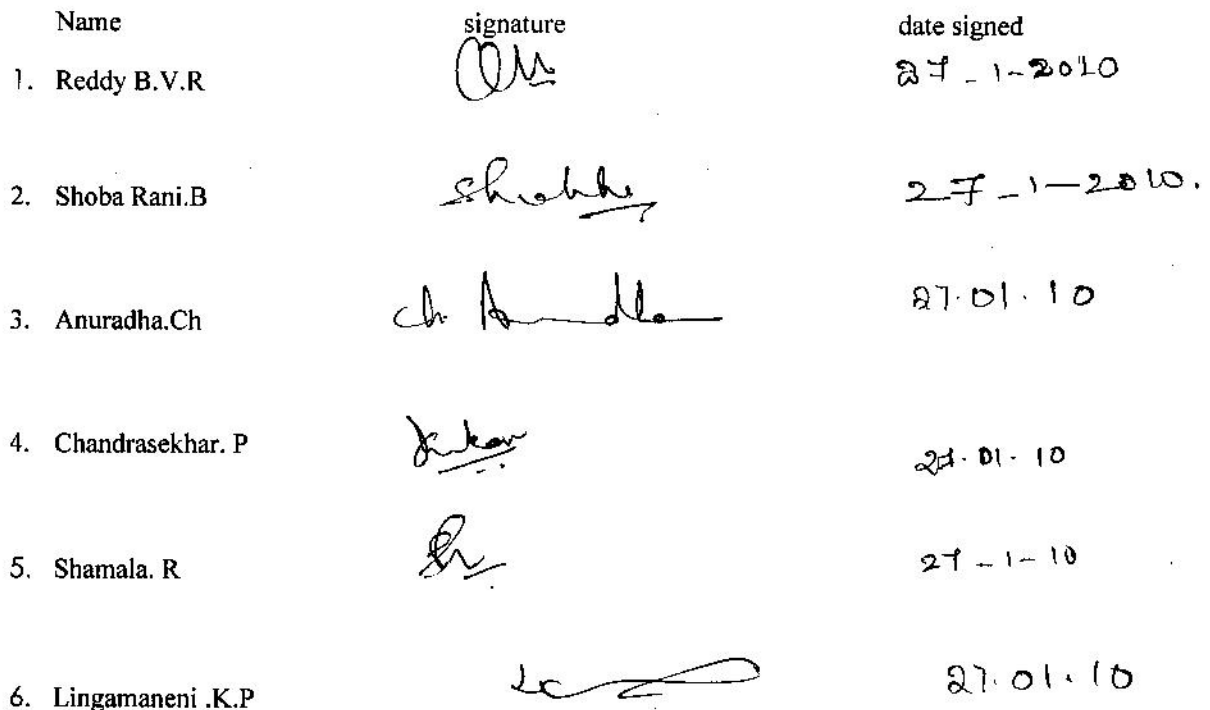 Name signature date signed
1. Reddy B.V.R 27-1-2010
2. Shoba Rani.B 27-1-2010.
3. Anuradha.Ch Ch. 27.01.10
4. Chandrasekhar. P 27.01.10
5. Shamala. R 27-1-10
6. Lingamaneni .K.P 27.01.10